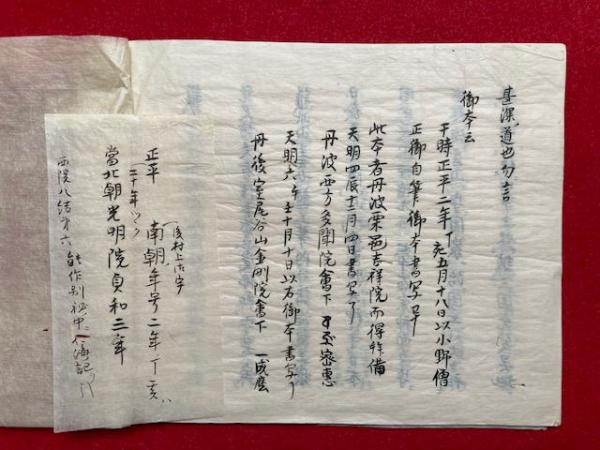 甚深道也勿言
御本云
于時正平二年丁亥五月十八日以小野僧
正御自筆御本書写畢
此本者丹波栗邑吉祥院而得拝借
天明四辰十二月四日書写了
丹波西方多聞院會下 密惠
天明六年十月十日以右御本書写了
丹後室尾谷山金剛院會下 一成麿
後村上御宇
正平 南朝年号二年丁亥
二十年
當北朝光明院貞和三年
西院八結第六 能作別秘中